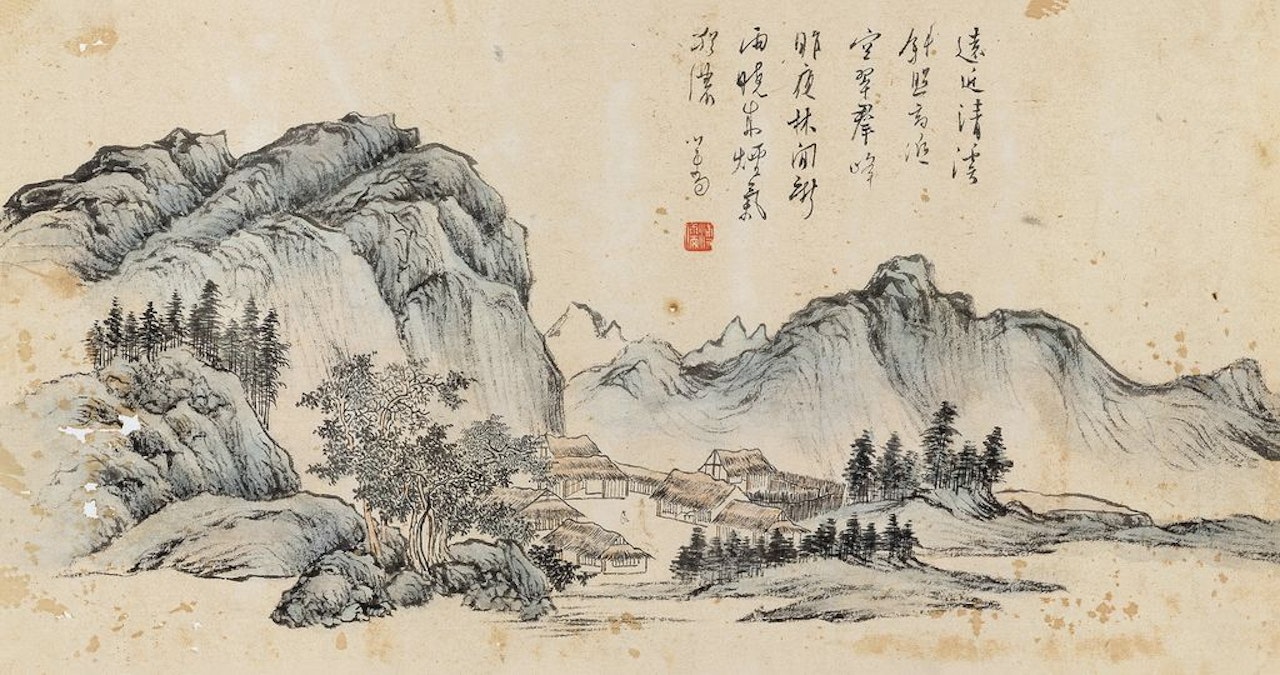 遠近清溪
斜照高低
空翠羣峰
昨夜林間新
雨曉來煙氣
猶濃 心畬